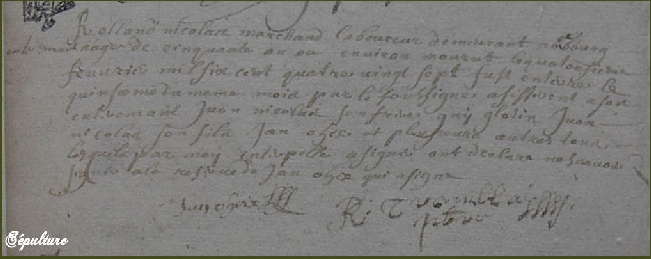 Rolland nicolas marchand laboureur demeurant au bourg
mariage de cinquante an ou environ mourut le quatorsieme
feuurie mil six cent quatres vingt sept fust enterre le
quinsieme du meme mois par le soussigne assistent a son
enteremant Jean nicolas son frere guy glotin Jean
nicolas son fils Jan ohex et plusieurs autres tous
lesquels par moy interpelle a signer ont declare ne scauoir
faute ala reserue de Jan ohex qui a signe
Jan ohex R: ptre
Sépulture